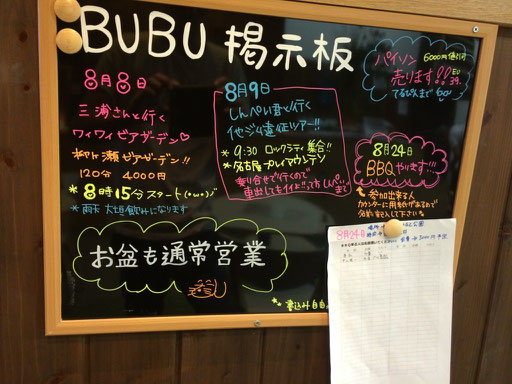 BUBU 掲示板
8月8日
三浦さんと行く
ワイワイビアガーデン♡
柳ヶ瀬ビアガーデン!!
120分 4000円
*8時15分スタート
*雨天 大垣飲みになります
8月9日
しんぺい君と行く
他ジム遠征ツアー!!
*9:30 ロックラティ集合!!
*名古屋プレイマウンテン
乗り合せで行くので
車出してもイイよ!!って方
まで
パイソン 6000円
売ります!!
EU
39.
てるぴんまで
8月24日
BBQやります!!!
*参加出来る人
カウンターに用紙があるので
名前記入して下さい。
お盆も通常営業
8月24日